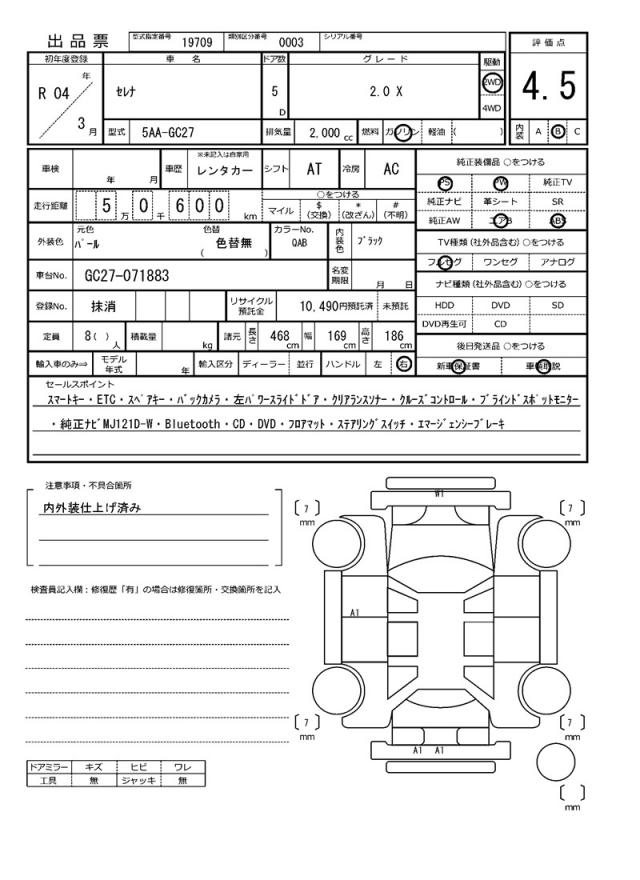 出品票 型式指定番号 19709 類別区分番号 0003 シリアル番号
初年度登録 車名 ドア数 グレード 駆動 評価点
R 04 年 3 月 セレナ 5 D 2.0 X 2WD 4WD 4.5
型式 5AA-GC27 排気量 2,000 cc 燃料 ガソリン 軽油 ( ) 内装 A B C
車検 年 月 車歴 ※未記入は自家用 レンタカー シフト AT 冷房 AC
走行距離 5 万 0 千 6 0 0 km ○をつける
マイル $ (交換) * (改ざん) # (不明)
外装色 元色 パール 色替 色替無 ( ) カラーNo. QAB 内装色 ブラック
車台No. GC27-071883 名変期限 月 日
登録No. 抹消 リサイクル預託金 10,490円預託済 未預託
定員 8( ) 人 積載量 kg 諸元 長さ 468 cm 幅 169 cm 高さ 186 cm
輸入車のみ⇒ モデル年式 年 輸入区分 ディーラー 並行 ハンドル 左 右
純正装備品 ○をつける
PS PW 純正TV
純正ナビ 革シート SR
純正AW エアB ABS
TV種類 (社外品含む) ○をつける
フルセグ ワンセグ アナログ
ナビ種類 (社外品含む) ○をつける
HDD DVD SD
DVD再生可 CD
後日発送品 ○をつける
新車保証書 車輌取説
セールスポイント
スマートキー・ETC・スペアキー・バックカメラ・左パワースライドドア・クリアランスソナー・クルーズコントロール・ブラインドスポットモニター
・純正ナビMJ121D-W・Bluetooth・CD・DVD・フロアマット・ステアリングスイッチ・エマージェンシーブレーキ
注意事項・不具合箇所
内外装仕上げ済み
検査員記入欄:修復歴「有」の場合は修復箇所・交換箇所を記入
ドアミラー キズ ヒビ ワレ
工具 無 ジャッキ 無
W1
7 mm
7 mm
A1
7 mm
7 mm
A1 A1
mm